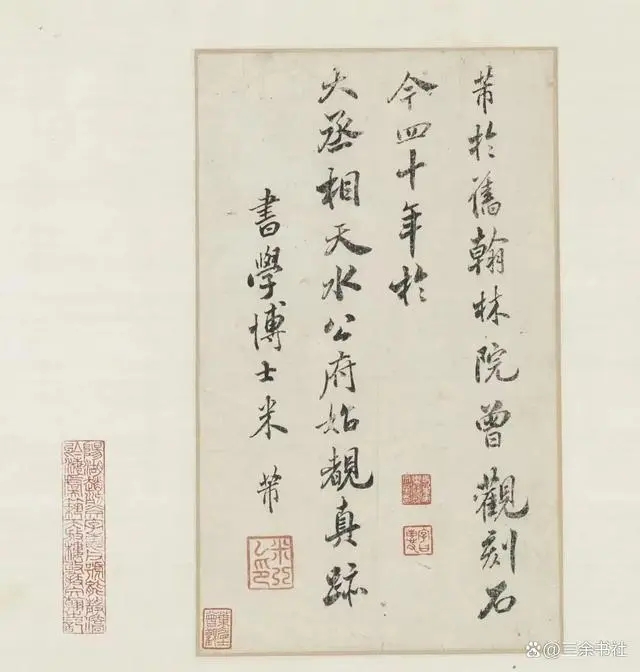 芾於舊翰林院曾觀刻石
今四十年於
大丞相天水公府始覩真跡
書學博士米芾
百家号/三余书社